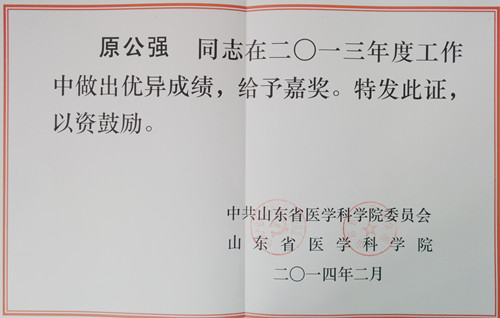 原公强 同志在二〇一三年度工作
中做出优异成绩，给予嘉奖。特发此证，
以资鼓励。
中共山东省医学科学院委员会
山东省医学科学院
二〇一四年二月